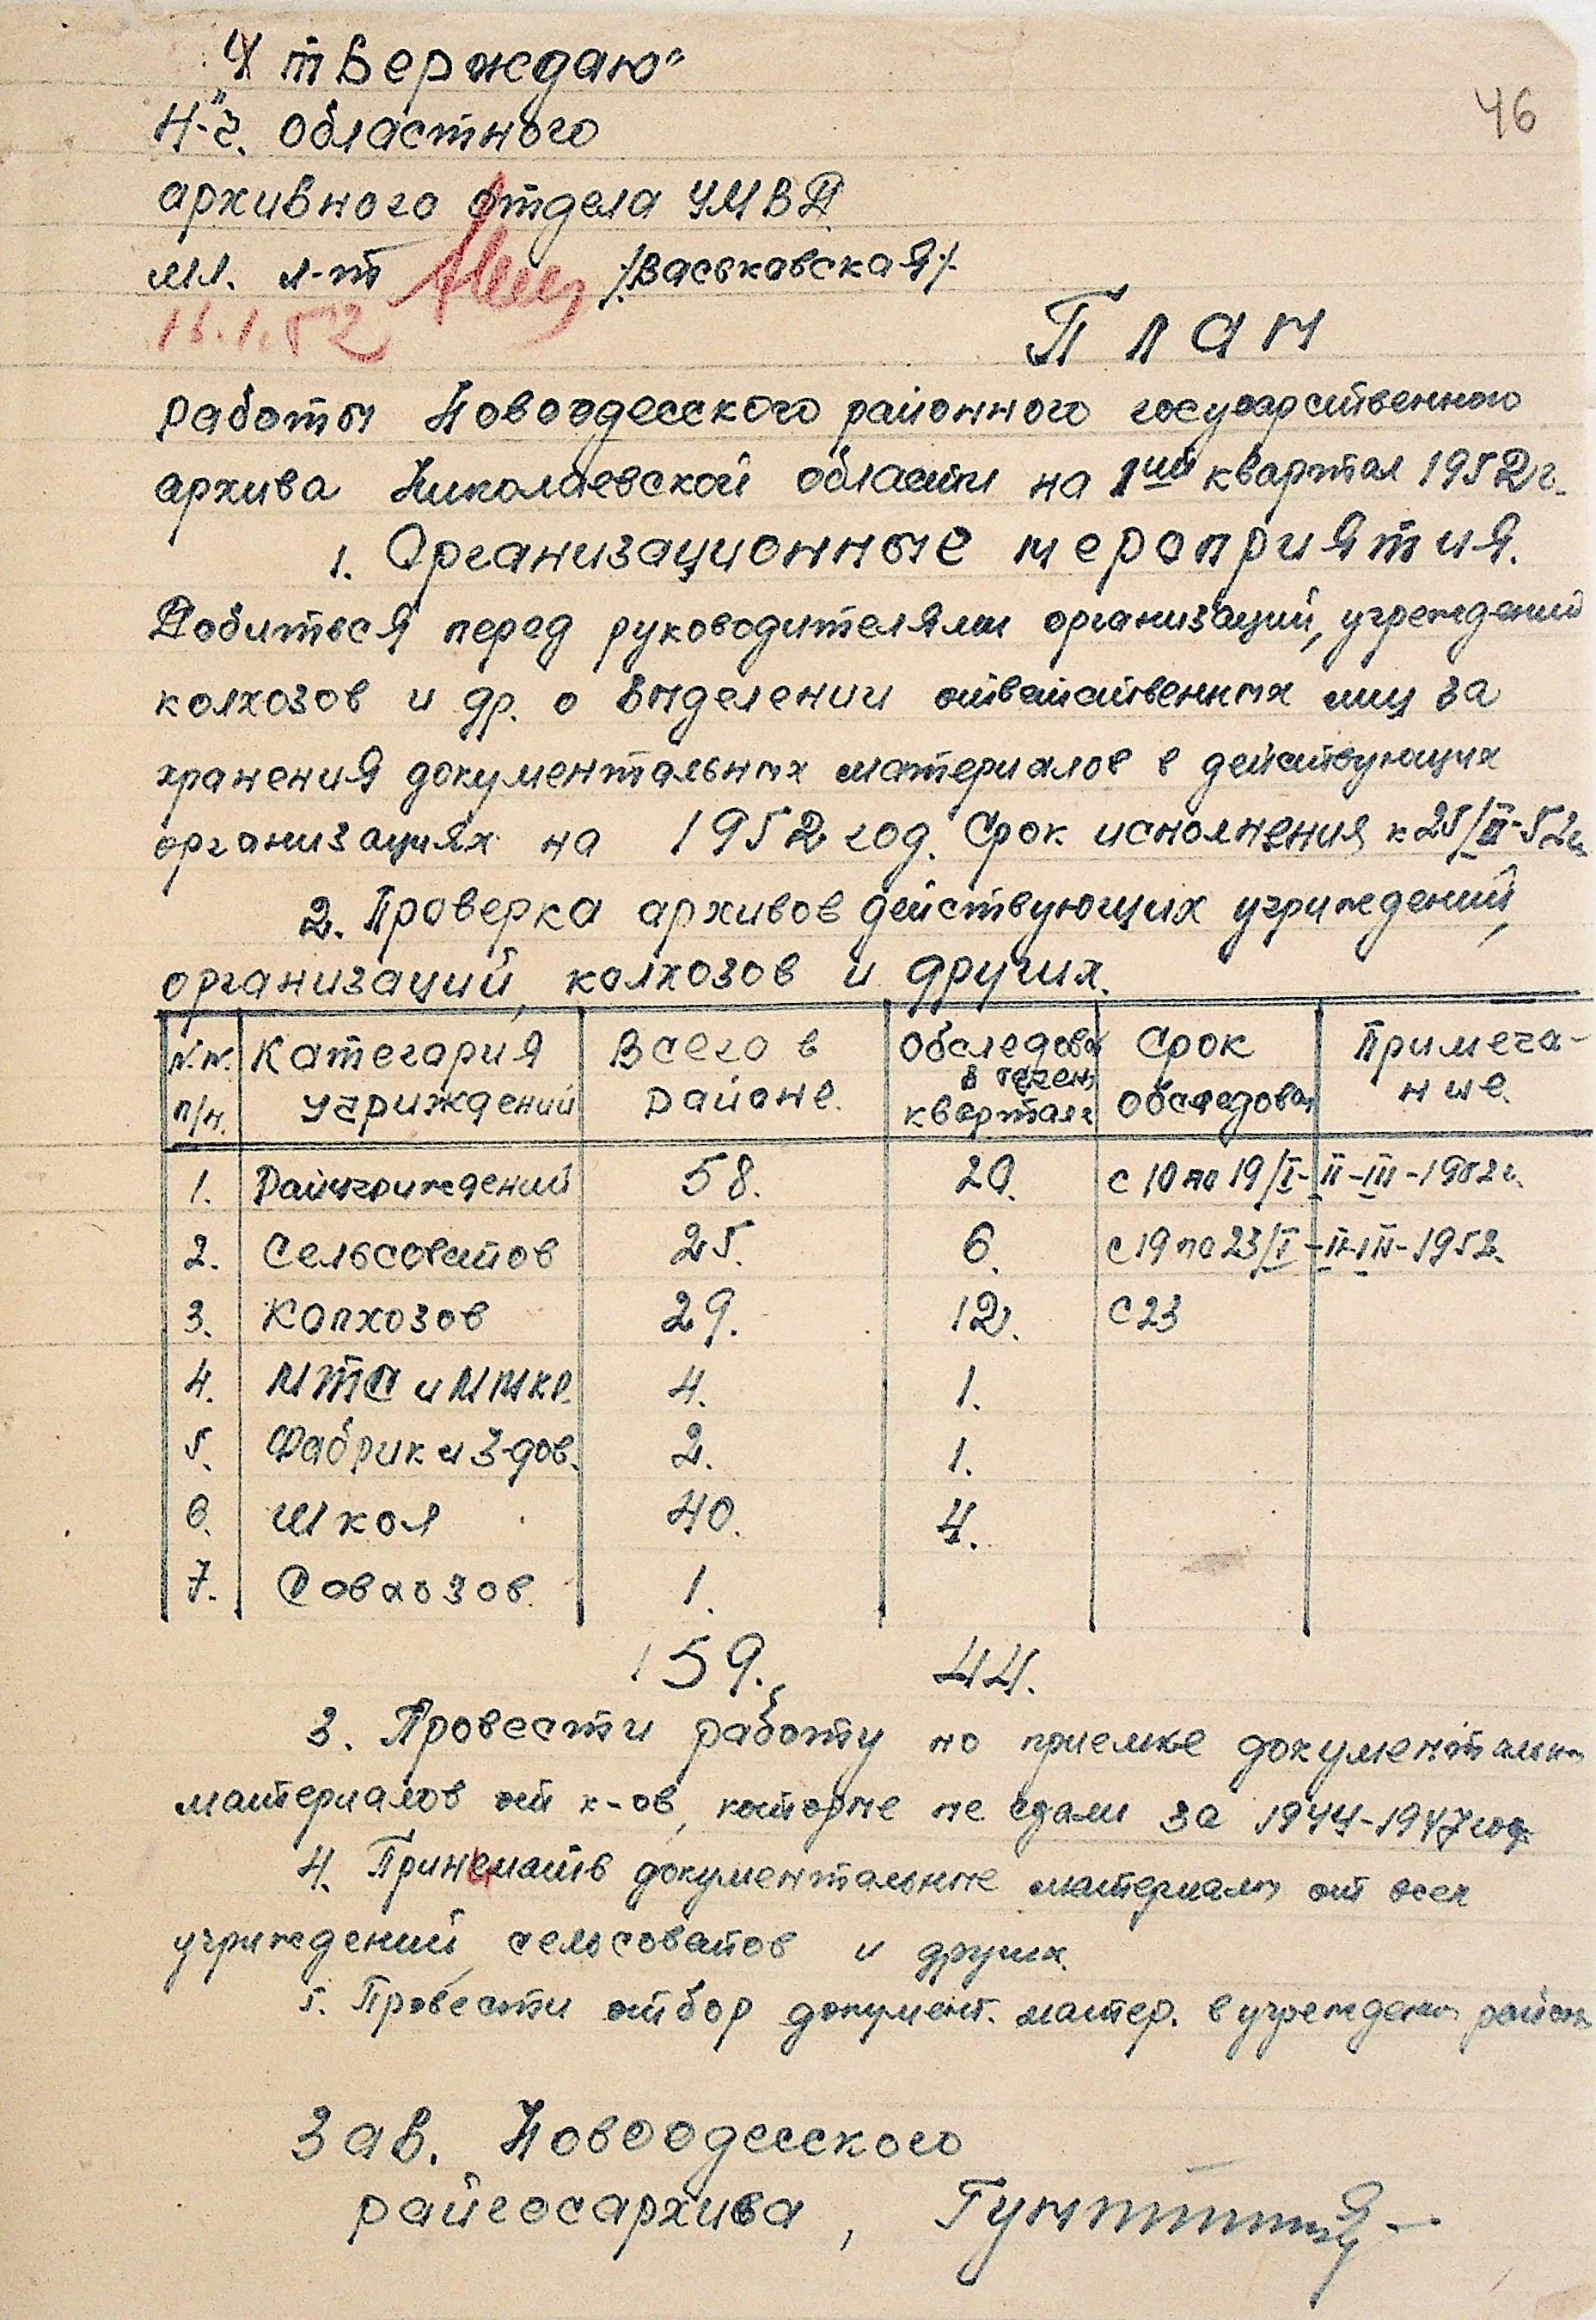 „Утверждаю"
46
Н-ч. областного
архивного отдела УМВД
мл. л-т /Васьковская/.
11.1.52
План
работы Новоодесского районного государственного
архива Николаевской области на 1ый квартал 1952 г.
1. Организационные мероприятия.
Добиться перед руководителями организаций, учреждений
колхозов и др. о выделении ответственных лиц за
хранения документальных материалов в действующих
организациях на 1952 год. Срок исполнения к 25/II-52 г.
2. Проверка архивов действующих учриждений,
организаций, колхозов и других.
N.N. Категария Всего в Обследова Срок Примеча-
п/н. учриждений районе. в течен. квартала обследован ние.
1. Райучриждений 58. 20. с 10 по 19/I-II-III-1952 г.
2. Сельсоветов 25. 6. с 19 по 23/I-II-III-1952.
3. Колхозов 29. 12. с 23
4. МТС и 4. 1.
5. Фабрик и З-дов. 2. 1.
6. Школ 40. 4.
7. Совхозов. 1.
159. 44.
3. Провести работу по приемке документальн
материалов от к-ов, которые не сдали за 1944-1947 год
4. Принимать документальные материалы от всех
учриждений, сельсоветов и других.
5. Провести отбор документ. матер. в учреждени района
Зав. Новоодесского
райгосархива,